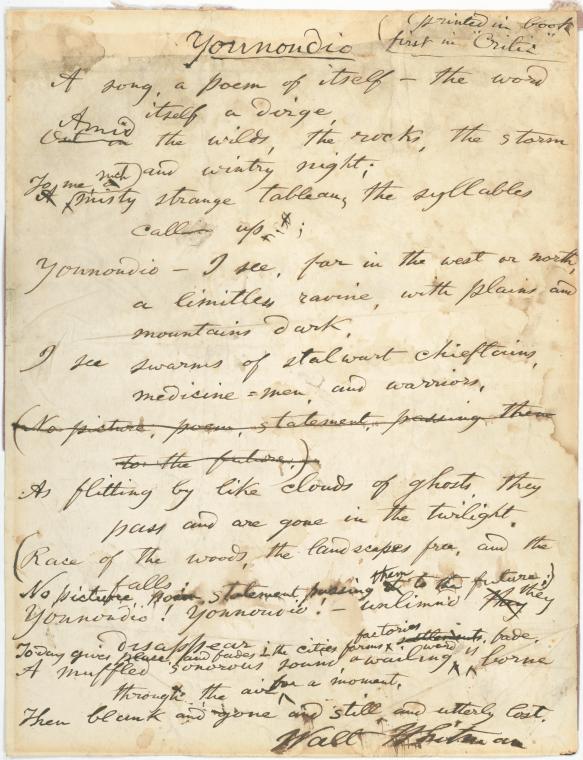 (printed in book
Yonnondio first in "Critic"
A song, a poem of itself — the word
itself a dirge,
Amid
Out on the wilds, the rocks, the storm
and wintry night;
To me, such
A misty strange tableaux the syllables
calling up;
Yonnondio — I see, far in the west or north,
a limitless ravine, with plains and
mountains dark,
I see swarms of stalwart chieftains,
medicine-men, and warriors,
(No picture, poem, statement, passing them
to the future:)
As flitting by like clouds of ghosts they
pass and are gone in the twilight,
(Race of the woods, the landscapes free, and the
falls;
them
No picture, poem, statement, passing to the future:)
Yonnondio! Yonnondio! — unlimn'd they
disappear;
factories
To-day gives place and fades — the cities farms fade.
A muffled sonorous sound, a wailing word is borne
through the air for a moment,
Then blank and gone and still, and utterly lost.
Walt Whitman